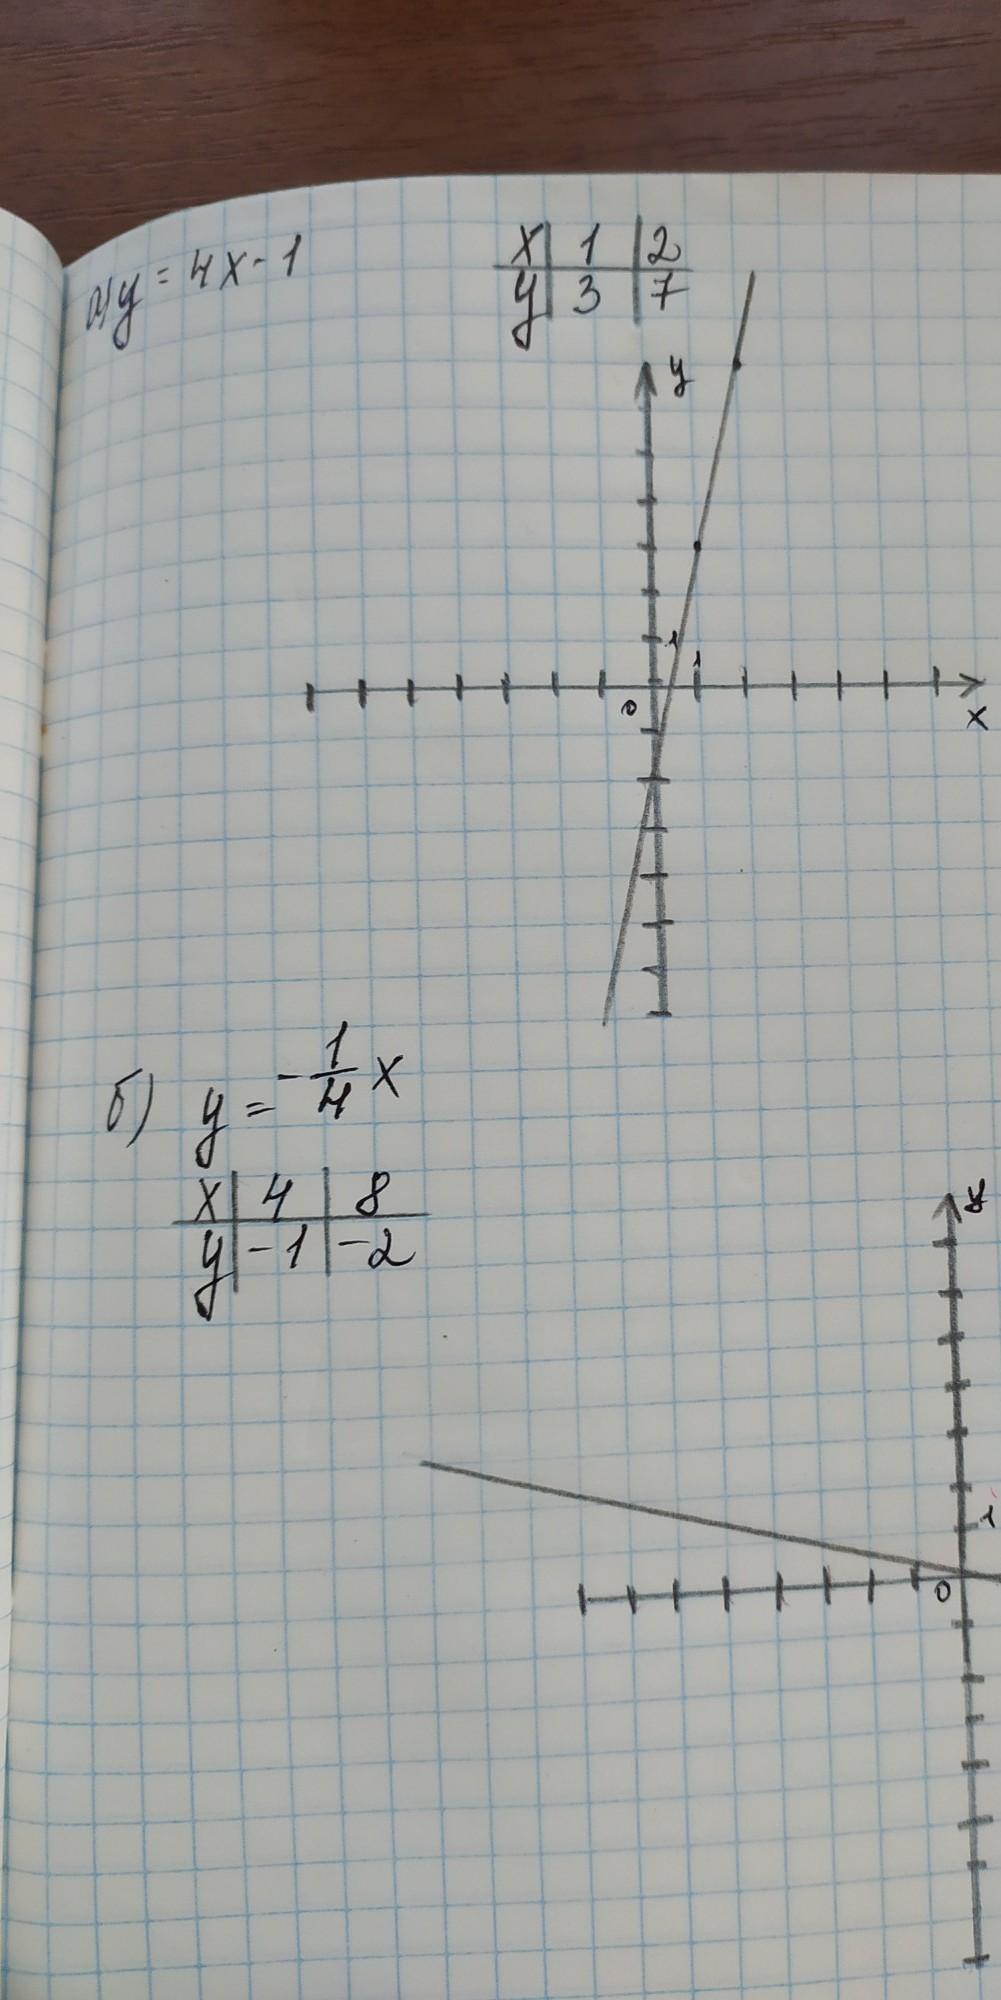 а) y = 4x - 1
x | 1 | 2
y | 3 | 7
y
1
1
0
x
б) y = -1/4 x
x | 4 | 8
y | -1 | -2
y
1
0